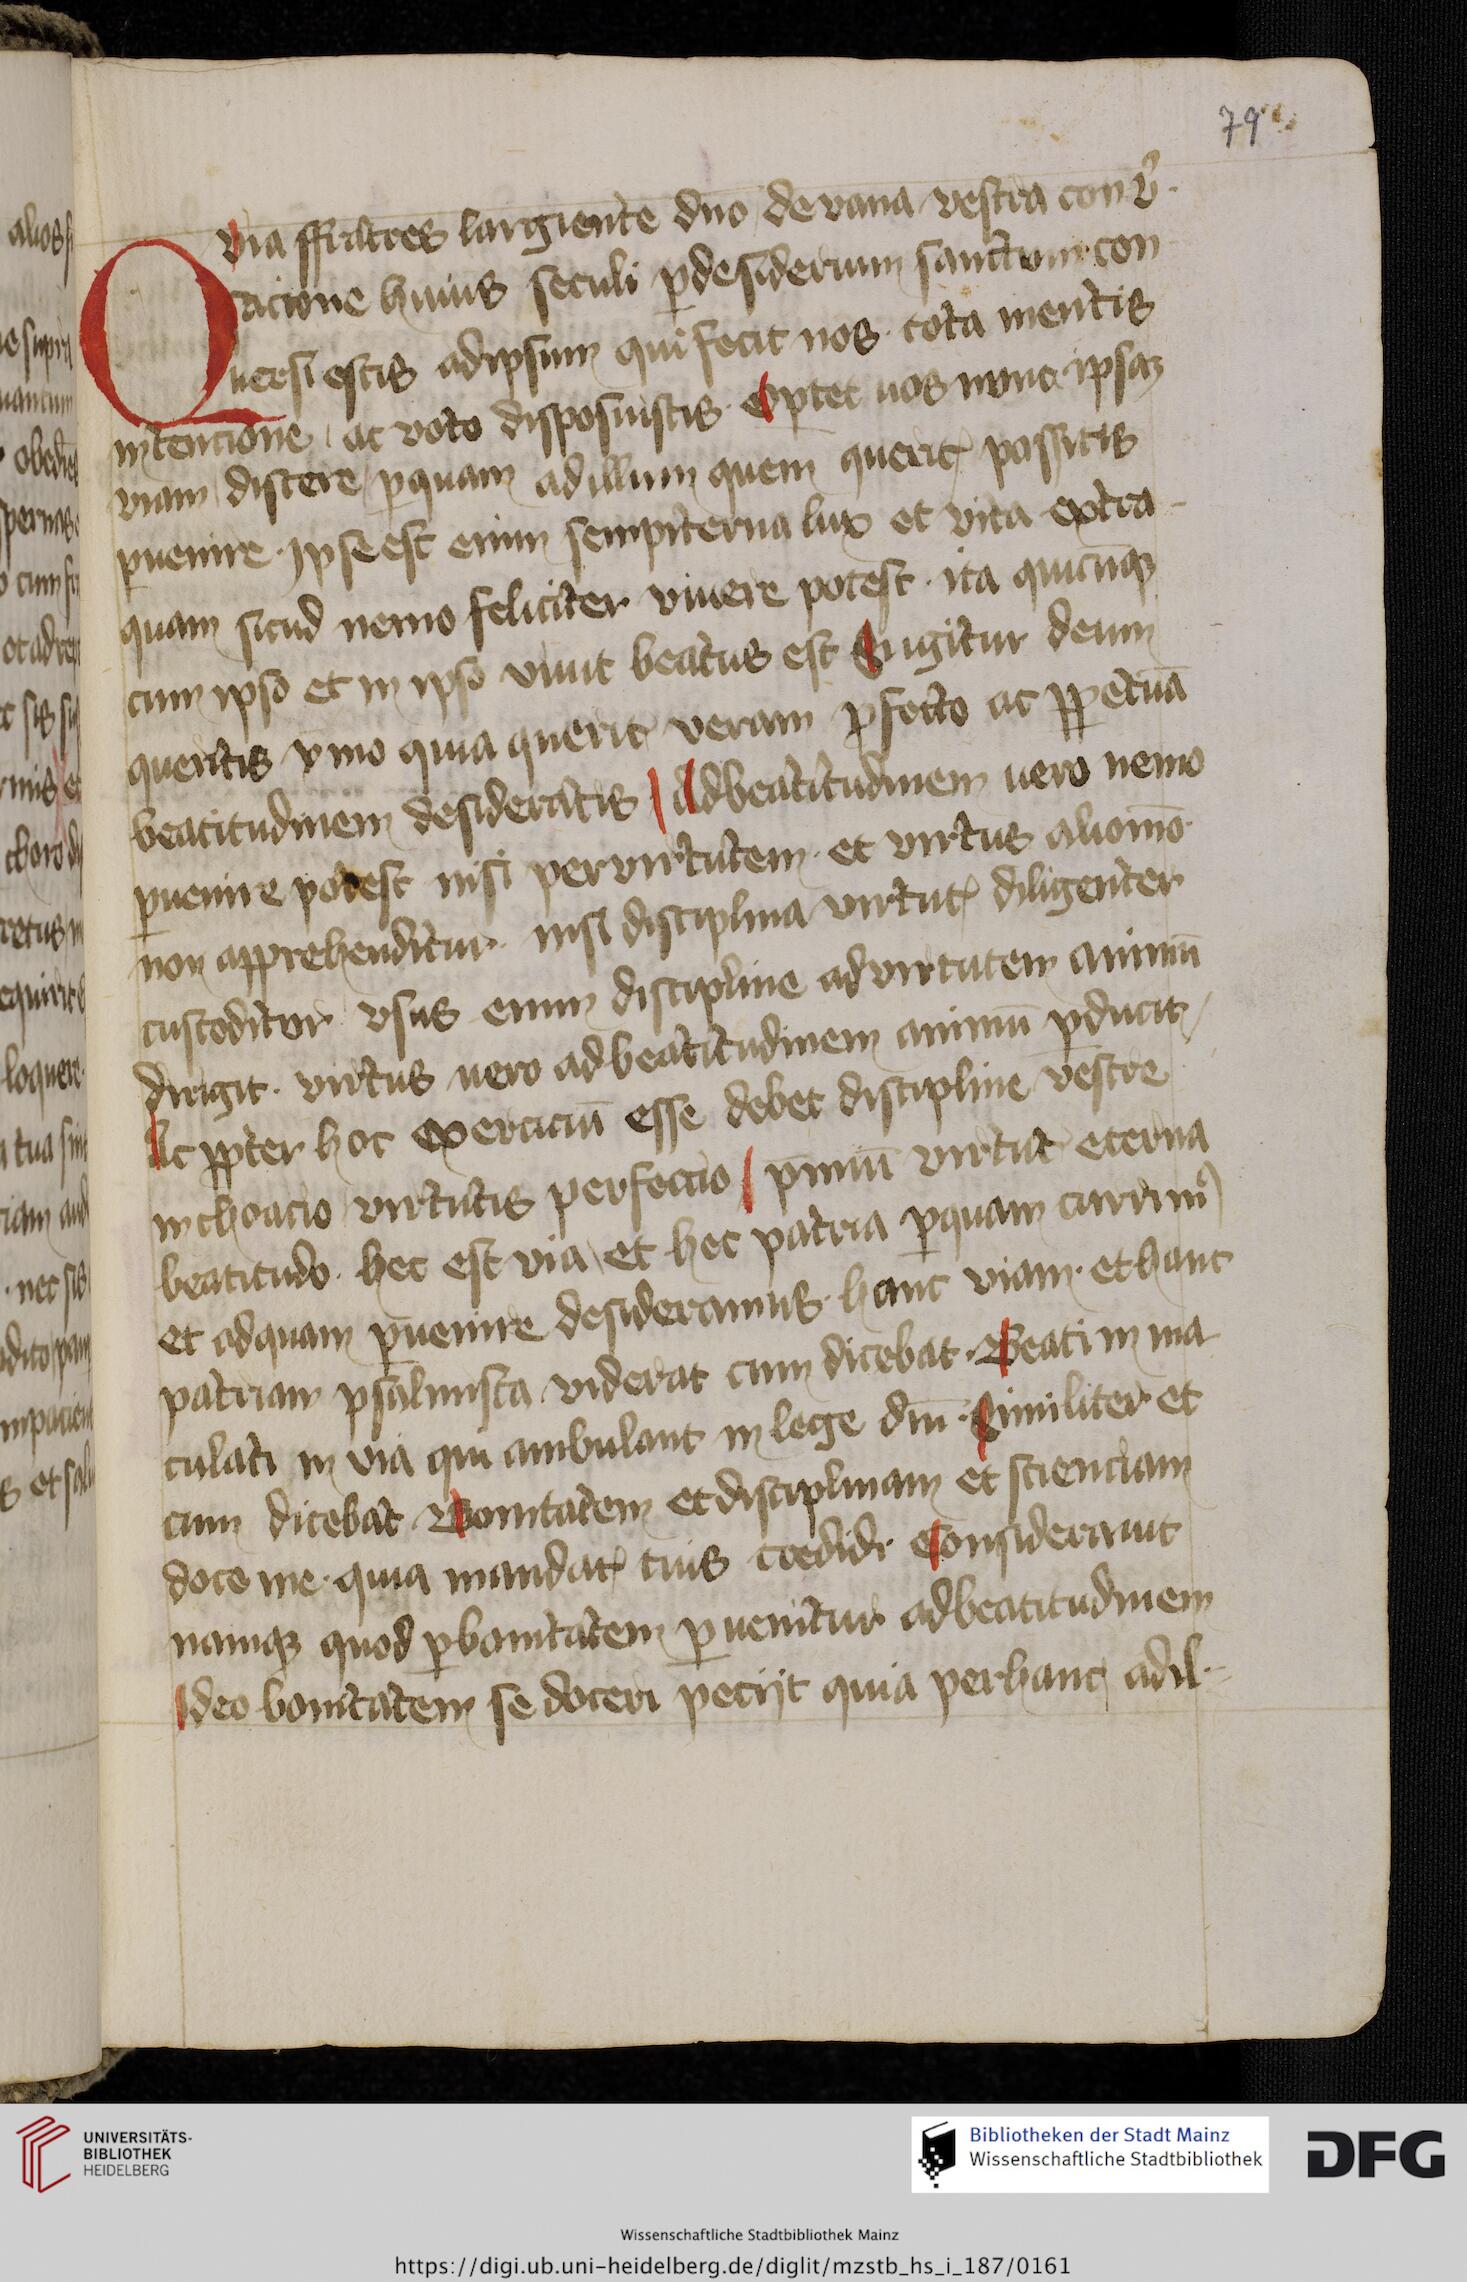 79
Quia ffratres largiente dño de vana vestra con v̾
sacione huius seculi ꝑ desiderium sanctum con
uersi estis ad ipsum qui fecit nos tota mentis
intencione ac voto disposuistis Optet uos nunc ipsaꝫ
viam discere ꝑ quam ad illum quem querit̾ possitis
ꝑuenire Ipse est enim sempiterna lux et vita extra
quam sicud nemo feliciter viuere potest ita quicũqꝫ
cum ipso et in ipso viuit beatus est Si igitur deum
queritis ymo quia querit̾ veram ꝑfecto ac ꝑpetuã
beatitudinem desideratis Ad beatitudinem uero nemo
ꝑuenire potest nisi per virtutem et virtus alio mō
non apprehenditur nisi disciplina virtut̾ diligenter
custoditur vsus enim discipline ad virtutem animũ
dirigit virtus uero ad beatitudinem animũ ꝑducit
Ac ꝓpter hoc exerciciũ esse debet discipline vestre
inchoacio virtutis perfectio p̃miũ virtut̾ eterna
beatitudo hec est via et hec patria ꝑ quam currimꝰ
et ad quam ꝑuenire desideramus hanc viam et hanc
patriam psalmista viderat cum dicebat Beati in ma
culati in via qui ambulant in lege dñi Similiter et
cum dicebat Bonitatem et disciplinam et scienciam
doce me quia mandat̾ tuis credidi Considerauit
namqꝫ quod ꝑ bonitatem ꝑuenitur ad beatitudinem
Ideo bonitatem se doceri pecijt quia per hanc ad il
UNIVERSITÄTS-
BIBLIOTHEK
HEIDELBERG
Bibliotheken der Stadt Mainz
Wissenschaftliche Stadtbibliothek
DFG
Wissenschaftliche Stadtbibliothek Mainz
https://digi.ub.uni-heidelberg.de/diglit/mzstb_hs_i_187/0161